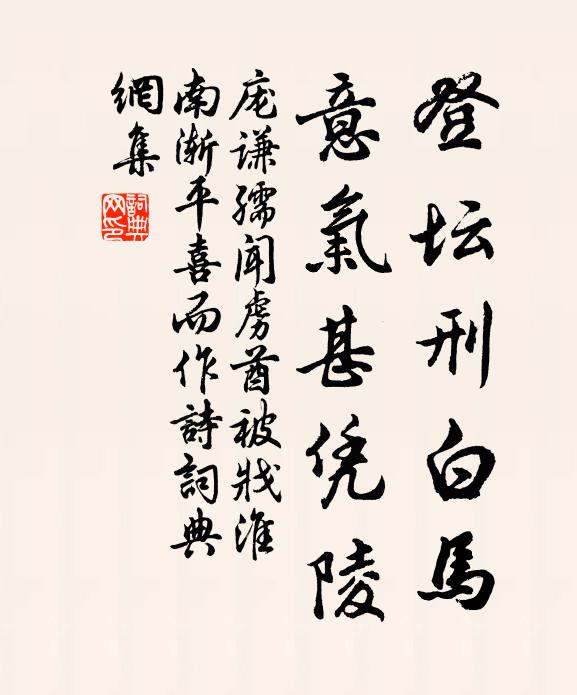 登坛刑白馬
意氣甚凭陵
庞谦孺闻虏酋被戕淮
南渐平喜而作詩詞典
網集
詞典
网印